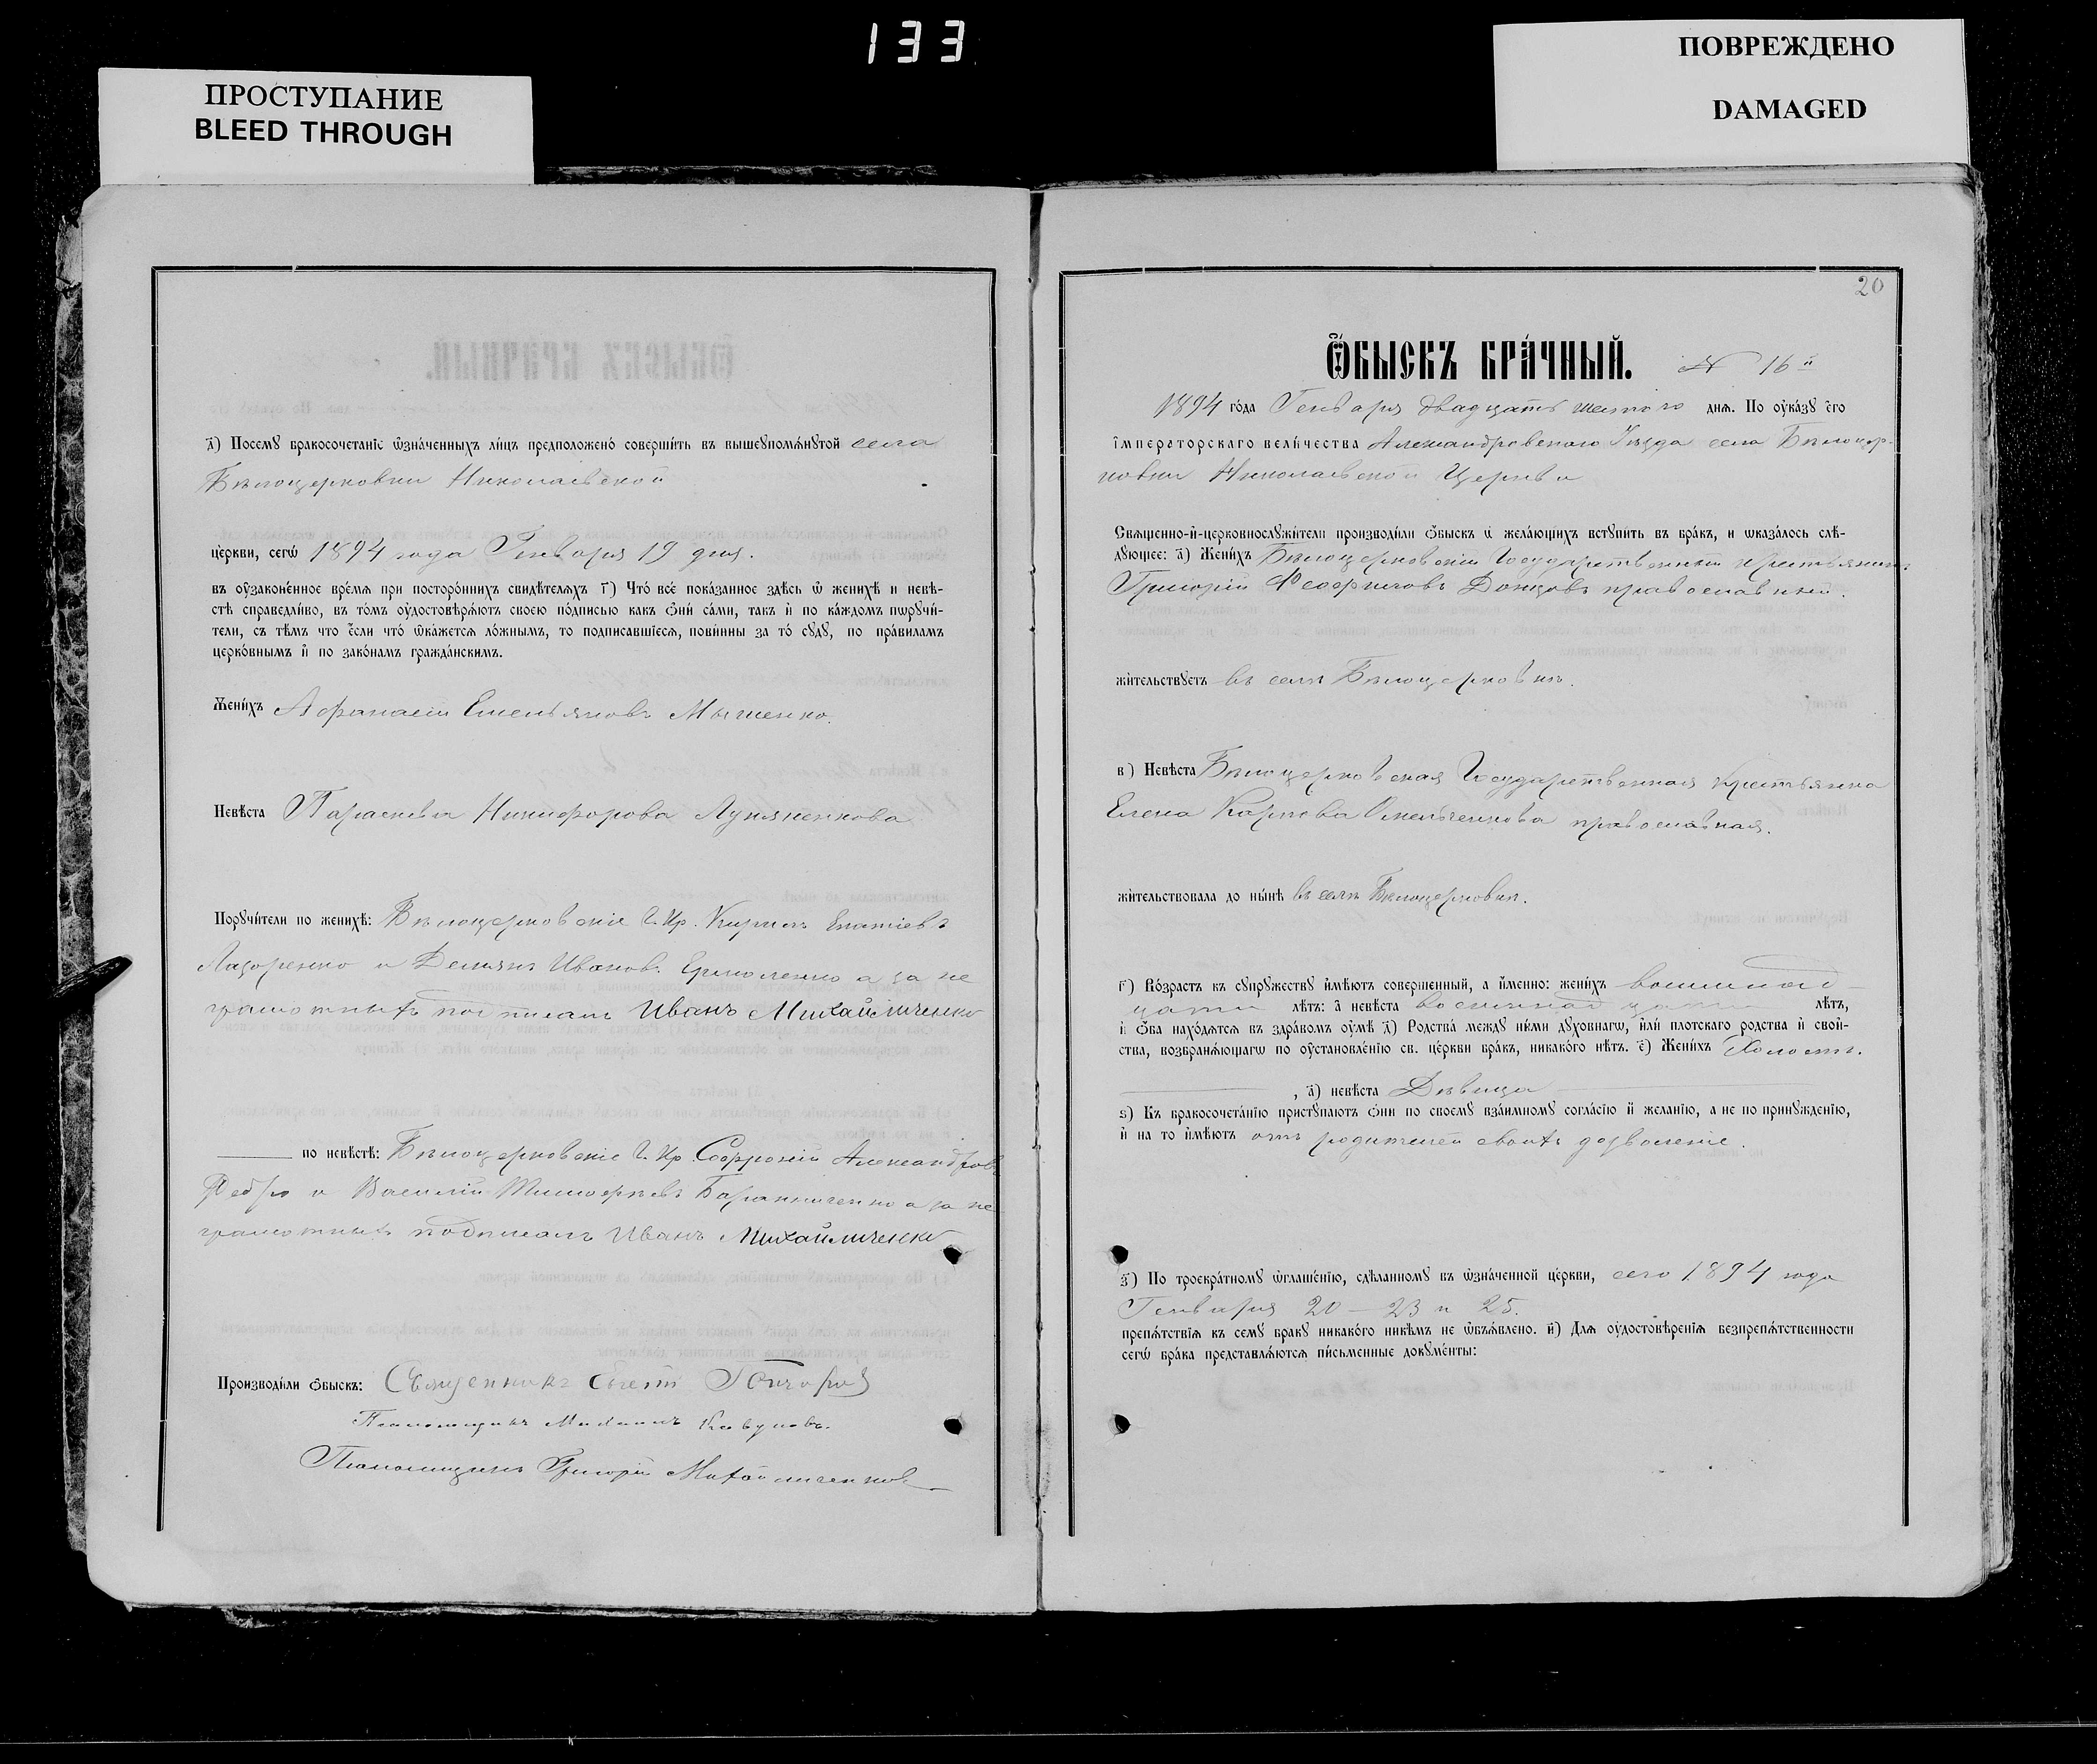 133
ПРОСТУПАНИЕ
BLEED THROUGH
ПОВРЕЖДЕНО
DAMAGED
д҃) Посемꙋ бракосочетанїе ѡ҆зна́ченныхъ ли́цъ предположено̀ соверши́ть въ вышеꙋпомѧ́нꙋтой села
Бѣлоцерковки Николаевской
це́ркви, сегѡ̀ 1894 года Генваря 19 дня.
въ ᲂу҆зако́ненное вре́мѧ при посторо́ннихъ свидѣ́телѧхъ г҃) Что̀ всѐ пока́занное здѣ́сь ѡ҆ женихѣ̀ и невѣ́-
стѣ справедли́во, въ то́мъ ᲂу҆достовѣрѧ́ютъ своею по́дписью какъ ѻ҆нѝ са́ми, такъ и҆ по ка́ждомъ порꙋчи́-
тели, съ тѣ́мъ что є҆́сли что̀ ѡ҆ка́жетсѧ ло́жнымъ, то подписавшїесѧ, пови́нны за то̀ сꙋдꙋ̀, по пра́виламъ
церко́внымъ и҆ по зако́намъ гражда́нскимъ.
Жени́хъ Афанасій Емельяновъ Мышенко.
Невѣ́ста Параскева Никифорова Лукяненкова
Порꙋчи́тели по женихѣ̀: Бѣлоцерковскіе Г. Кр. Кирилъ Игнатіевъ
Лазоренко и Демянъ Иванов. Ермоленко а за не
грамотныхъ подписалъ Иванъ Михайличенко
по невѣ́стѣ: Бѣлоцерковскіе Г. Кр. Софроній Александров
Федько и Василій Тимофеевъ Баранниченко а за не
грамотныхъ подписалъ Иванъ Михайличенко
Производи́ли ѻ҆́быскъ: Священникъ Гончаровъ
Псаломщикъ Михаилъ Кавуновъ.
Псаломщикъ Григорій Михайличенковъ
20
Ѻ҆БЫСКЪ БРА́ЧНЫЙ. N 16й
1894 го́да Генваря двадцать шестого днѧ̀. По ᲂу҆ка́зꙋ є҆гѡ̀
і҆мператорскагѡ вели́чества Александровскаго Уѣзда села Бѣлоцер-
ковки Николаевской Церкви
Свѧщенно-и҆-церковнослꙋжи́тели производи́ли ѻ҆́быскъ ѡ҆ жела́ющихъ встꙋпи́ть въ бра́къ, и ѡ҆каза́лось слѣ́-
дꙋющее: а҃) Жени́хъ Бѣлоцерковскій Государственный Крестьянинъ
Григорій Феофиловъ Донцовъ православный.
жи́тельствꙋетъ въ селѣ Бѣлоцерковкѣ.
в҃) Невѣ́ста Бѣлоцерковская Государственная Крестьянка
Елена Карпова Омельченкова православная.
жи́тельствовала до ны́нѣ въ селѣ Бѣлоцерковкѣ.
г҃) Во́зрастъ къ сꙋпрꙋ́жествꙋ и҆мѣ́ютъ соверше́нный, а и҆́менно: жени́хъ восемнад-
цати лѣ́тъ: а҆ невѣ́ста восемнадцати лѣ́тъ,
и҆ ѻ҆́ба нахо́дѧтсѧ въ здра́вомъ ᲂу҆мѣ̀ д҃) Родства̀ междꙋ ни́ми дꙋхо́внагѡ, и҆лѝ пло́тскагѡ родства и҆ свой-
ства̀, возбранѧ́ющагѡ по ᲂу҆становле́нїю св. це́ркви бра́къ, никако́го нѣ́тъ. є҃) Жени́хъ Холостъ.
, а҃) невѣ́ста Дѣвица
ѕ҃) Къ бракосочета́нїю пристꙋпа́ютъ ѻ҆нѝ по своемꙋ̀ взаи́мномꙋ согла́сїю и҆ жела́нїю, а не по принꙋжде́нїю,
и҆ на то и҆мѣ́ютъ отъ родителей своихъ дозволеніе.
з҃) По троекра́тномꙋ ѡ҆глаше́нїю, сдѣ́ланномꙋ въ ѡ҆зна́ченной це́ркви, сего 1894 года
Генваря 20 – 23 и 25.
препѧ́тствїѧ къ семꙋ̀ бракꙋ никако́го никѣ́мъ не ѡ҆бъѧ́влено. и҃) Длѧ ᲂу҆достовѣ́ренїѧ безпрепѧ́тственности
сегѡ̀ бра́ка представлѧ́ютсѧ пи́сьменные докꙋме́нты: